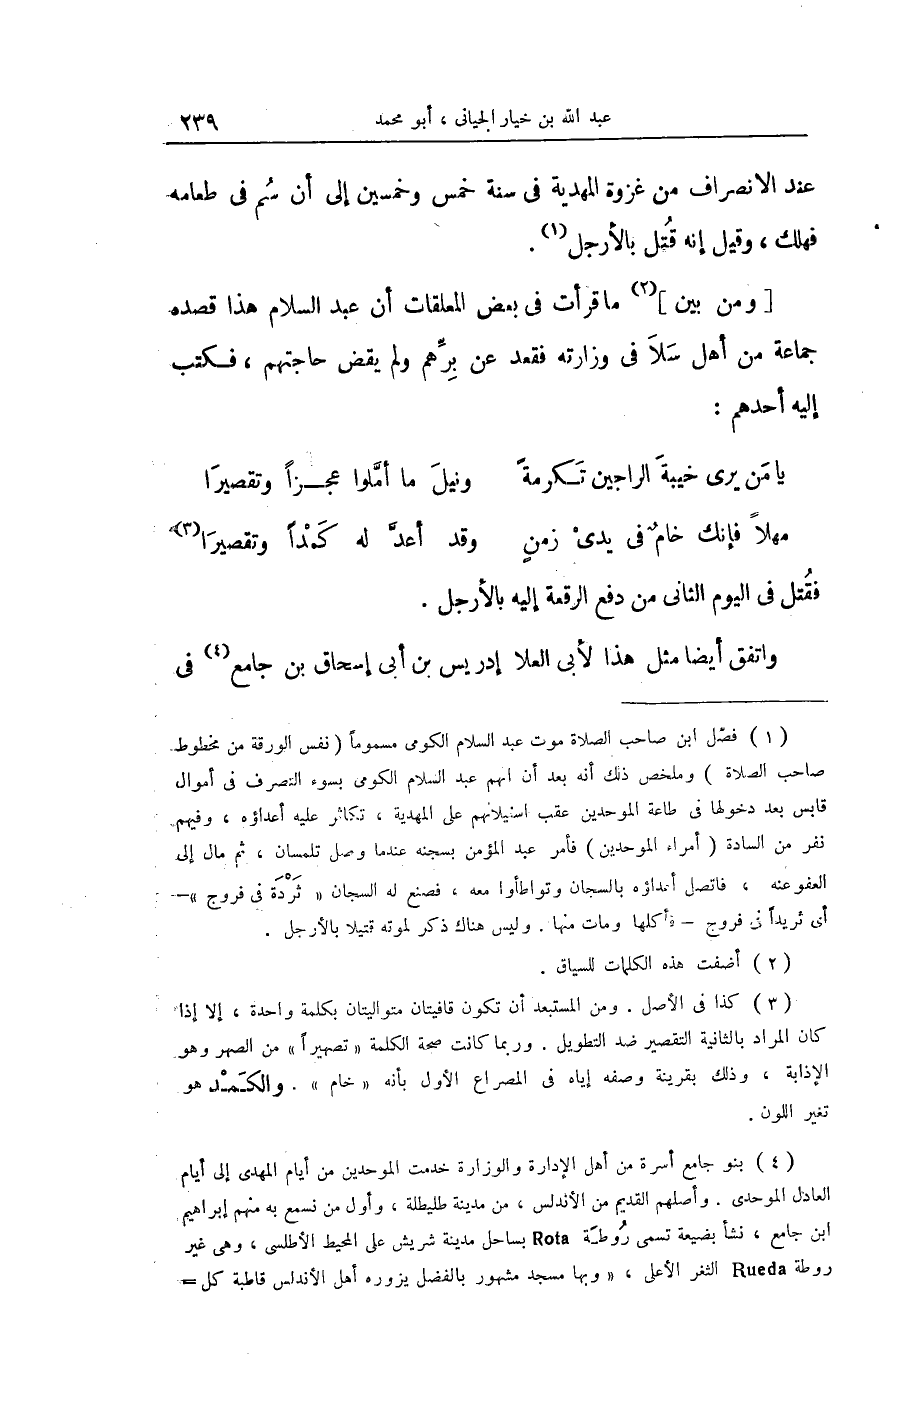 عبد الله بن خيار الجيانى ، أبو محمد ٢٣٩
عند الانصراف من غزوة المهدية فى سنة خمس وخمسين إلى أن سُم فى طعامه
فهلك ، وقيل إنه قُتل بالأرجل (١) .
[ ومن بين ] (٢) ما قرأت فى بعض المعلقات أن عبد السلام هذا قصده
جماعة من أهل سَلاَ فى وزارته فقعد عن بِرِّهم ولم يقض حاجتهم ، فكتب
إليه أحدهم :
يا مَن يرى خيبةَ الراجين تَكرمةً ونيلَ ما أمَّلوا عجزاً وتقصيرَا
مهلاً فإنك خامٌ فى يدىْ زمنٍ وقد أعدَّ له كَمْداً وتقصيرَا (٣)
فقُتل فى اليوم الثانى من دفع الرقعة إليه بالأرجل .
واتفق أيضا مثل هذا لأبى العلا إدريس بن أبى إسحاق بن جامع (٤) فى
( ١ ) فصّل ابن صاحب الصلاة موت عبد السلام الكومى مسموماً ( نفس الورقة من مخطوط
صاحب الصلاة ) وملخص ذلك أنه بعد أن اتهم عبد السلام الكومى بسوء التصرف فى أموال
قابس بعد دخولها فى طاعة الموحدين عقب استيلائهم على المهدية ، تكاثر عليه أعداؤه ، وفيهم
نفر من السادة ( أمراء الموحدين ) فأمر عبد المؤمن بسجنه عندما وصل تلمسان ، ثم مال إلى
العفو عنه ، فاتصل أعداؤه بالسجان وتواطأوا معه ، فصنع له السجان « ثَرْدَة فى فروج » —
أى ثريداً فى فروج — فأكلها ومات منها . وليس هناك ذكر لموته قتيلا بالأرجل .
( ٢ ) أضفت هذه الكلمات للسياق .
( ٣ ) كذا فى الأصل . ومن المستبعد أن تكون قافيتان متواليتان بكلمة واحدة ، إلا إذا
كان المراد بالثانية التقصير ضد التطويل . وربما كانت صحة الكلمة « تصهيراً » من الصهر وهو
الإذابة ، وذلك بقرينة وصفه إياه فى المصراع الأول بأنه « خام » . والكَمْد هو
تغير اللون .
( ٤ ) بنو جامع أسرة من أهل الإدارة والوزارة خدمت الموحدين من أيام المهدى إلى أيام
العادل الموحدى . وأصلهم القديم من الأندلس ، من مدينة طليطلة ، وأول من نسمع به منهم إبراهيم
ابن جامع ، نشأ بضيعة تسمى رُوطَة Rota بساحل مدينة شريش على المحيط الأطلسى ، وهى غير
روطة Rueda الثغر الأعلى ، « وبها مسجد مشهور بالفضل يزوره أهل الأندلس قاطبة كل =